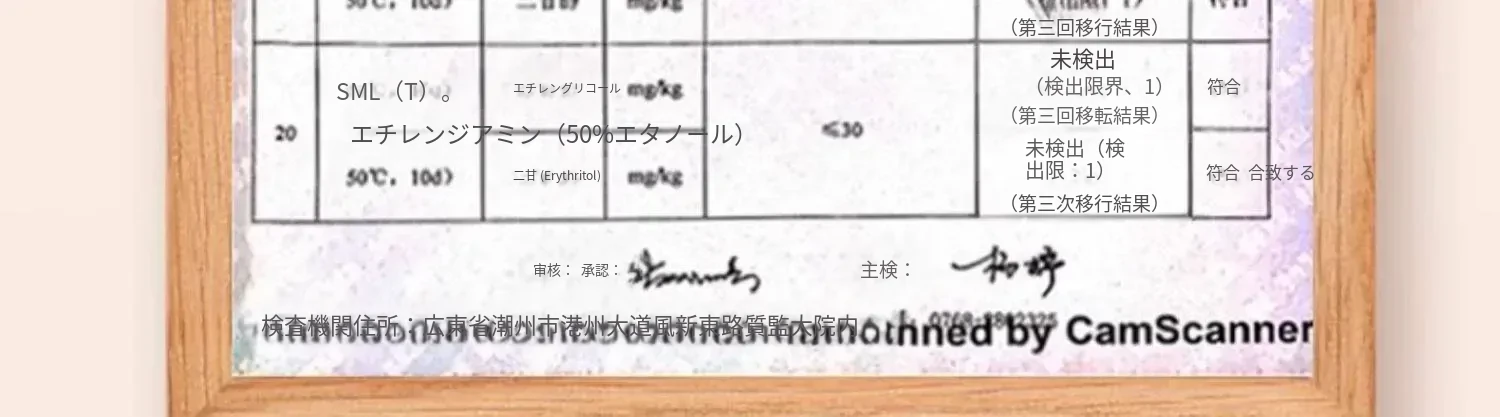 50℃, 10d) mg/kg
(第三回移行結果)
未検出
SML(T)。 エチレングリコール mg/kg (検出限界、1) 符合
(第三回移転結果)
20 エチレンジアミン(50%エタノール) ≤30
未検出(検
出限:1)
50℃, 10d) 二甘 (Erythritol) mg/kg 符合 合致する
(第三次移行結果)
审核: 承認: 主検:
検査機関住所:広東省潮州市港州大道風新東路質監大院内 0768-
nned by CamScanner